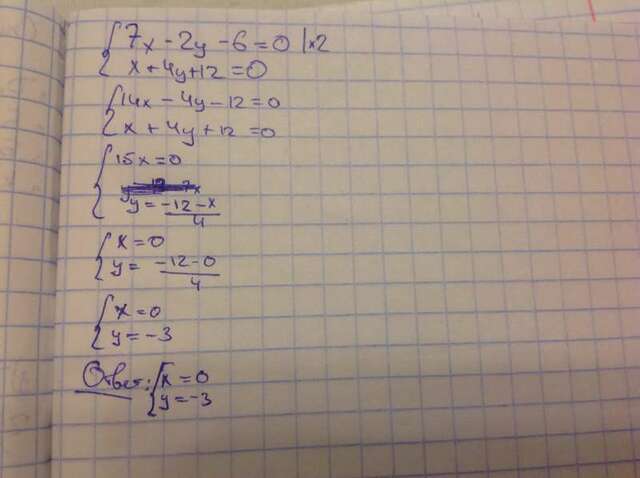 7x - 2y - 6 = 0 | x2
x + 4y + 12 = 0
14x - 4y - 12 = 0
x + 4y + 12 = 0
15x = 0
y = -12 - x
4
x = 0
y = -12 - 0
4
x = 0
y = -3
Ответ: x = 0
y = -3